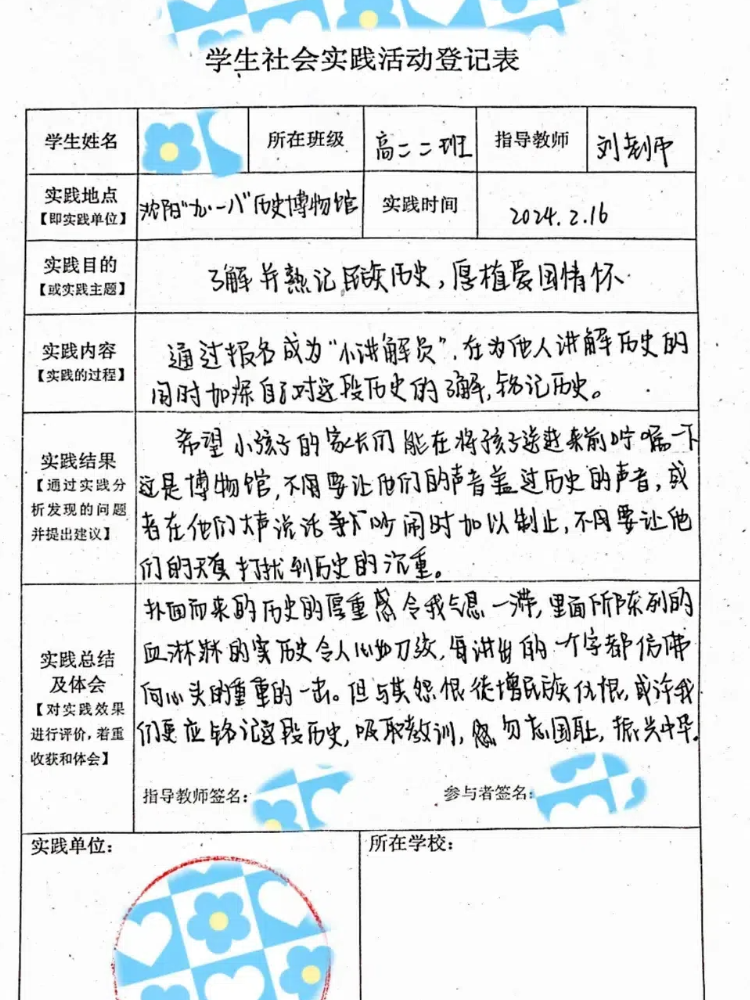 学生社会实践活动登记表
学生姓名
所在班级
高二二班
指导教师
刘老师
实践地点
【即实践单位】
沈阳"九·一八"历史博物馆
实践时间
2024.2.16
实践目的
【或实践主题】
了解并熟记民族历史，厚植爱国情怀
实践内容
【实践的过程】
通过报名成为"小讲解员"，在为他人讲解历史的
同时加深自己对这段历史的了解，铭记历史。
实践结果
【通过实践分
析发现的问题
并提出建议】
希望小孩子的家长们能在将孩子送进来前叮嘱一下
这是博物馆，不要让他们的声音盖过历史的声音，或
者在他们大声说话吵闹时加以制止，不要让他
们的天真打扰到历史的沉重。
实践总结
及体会
【对实践效果
进行评价，着重
收获和体会】
扑面而来的历史的厚重感令我气息一滞，里面所陈列的
血淋淋的实历史令人心如刀绞，每讲出的一个字都仿佛
向心头的重重的一击。但与其怨恨徒增民族仇恨，或许我
们更应铭记这段历史，吸取教训，勿忘国耻，振兴中华。
指导教师签名：
参与者签名：
实践单位：
所在学校：